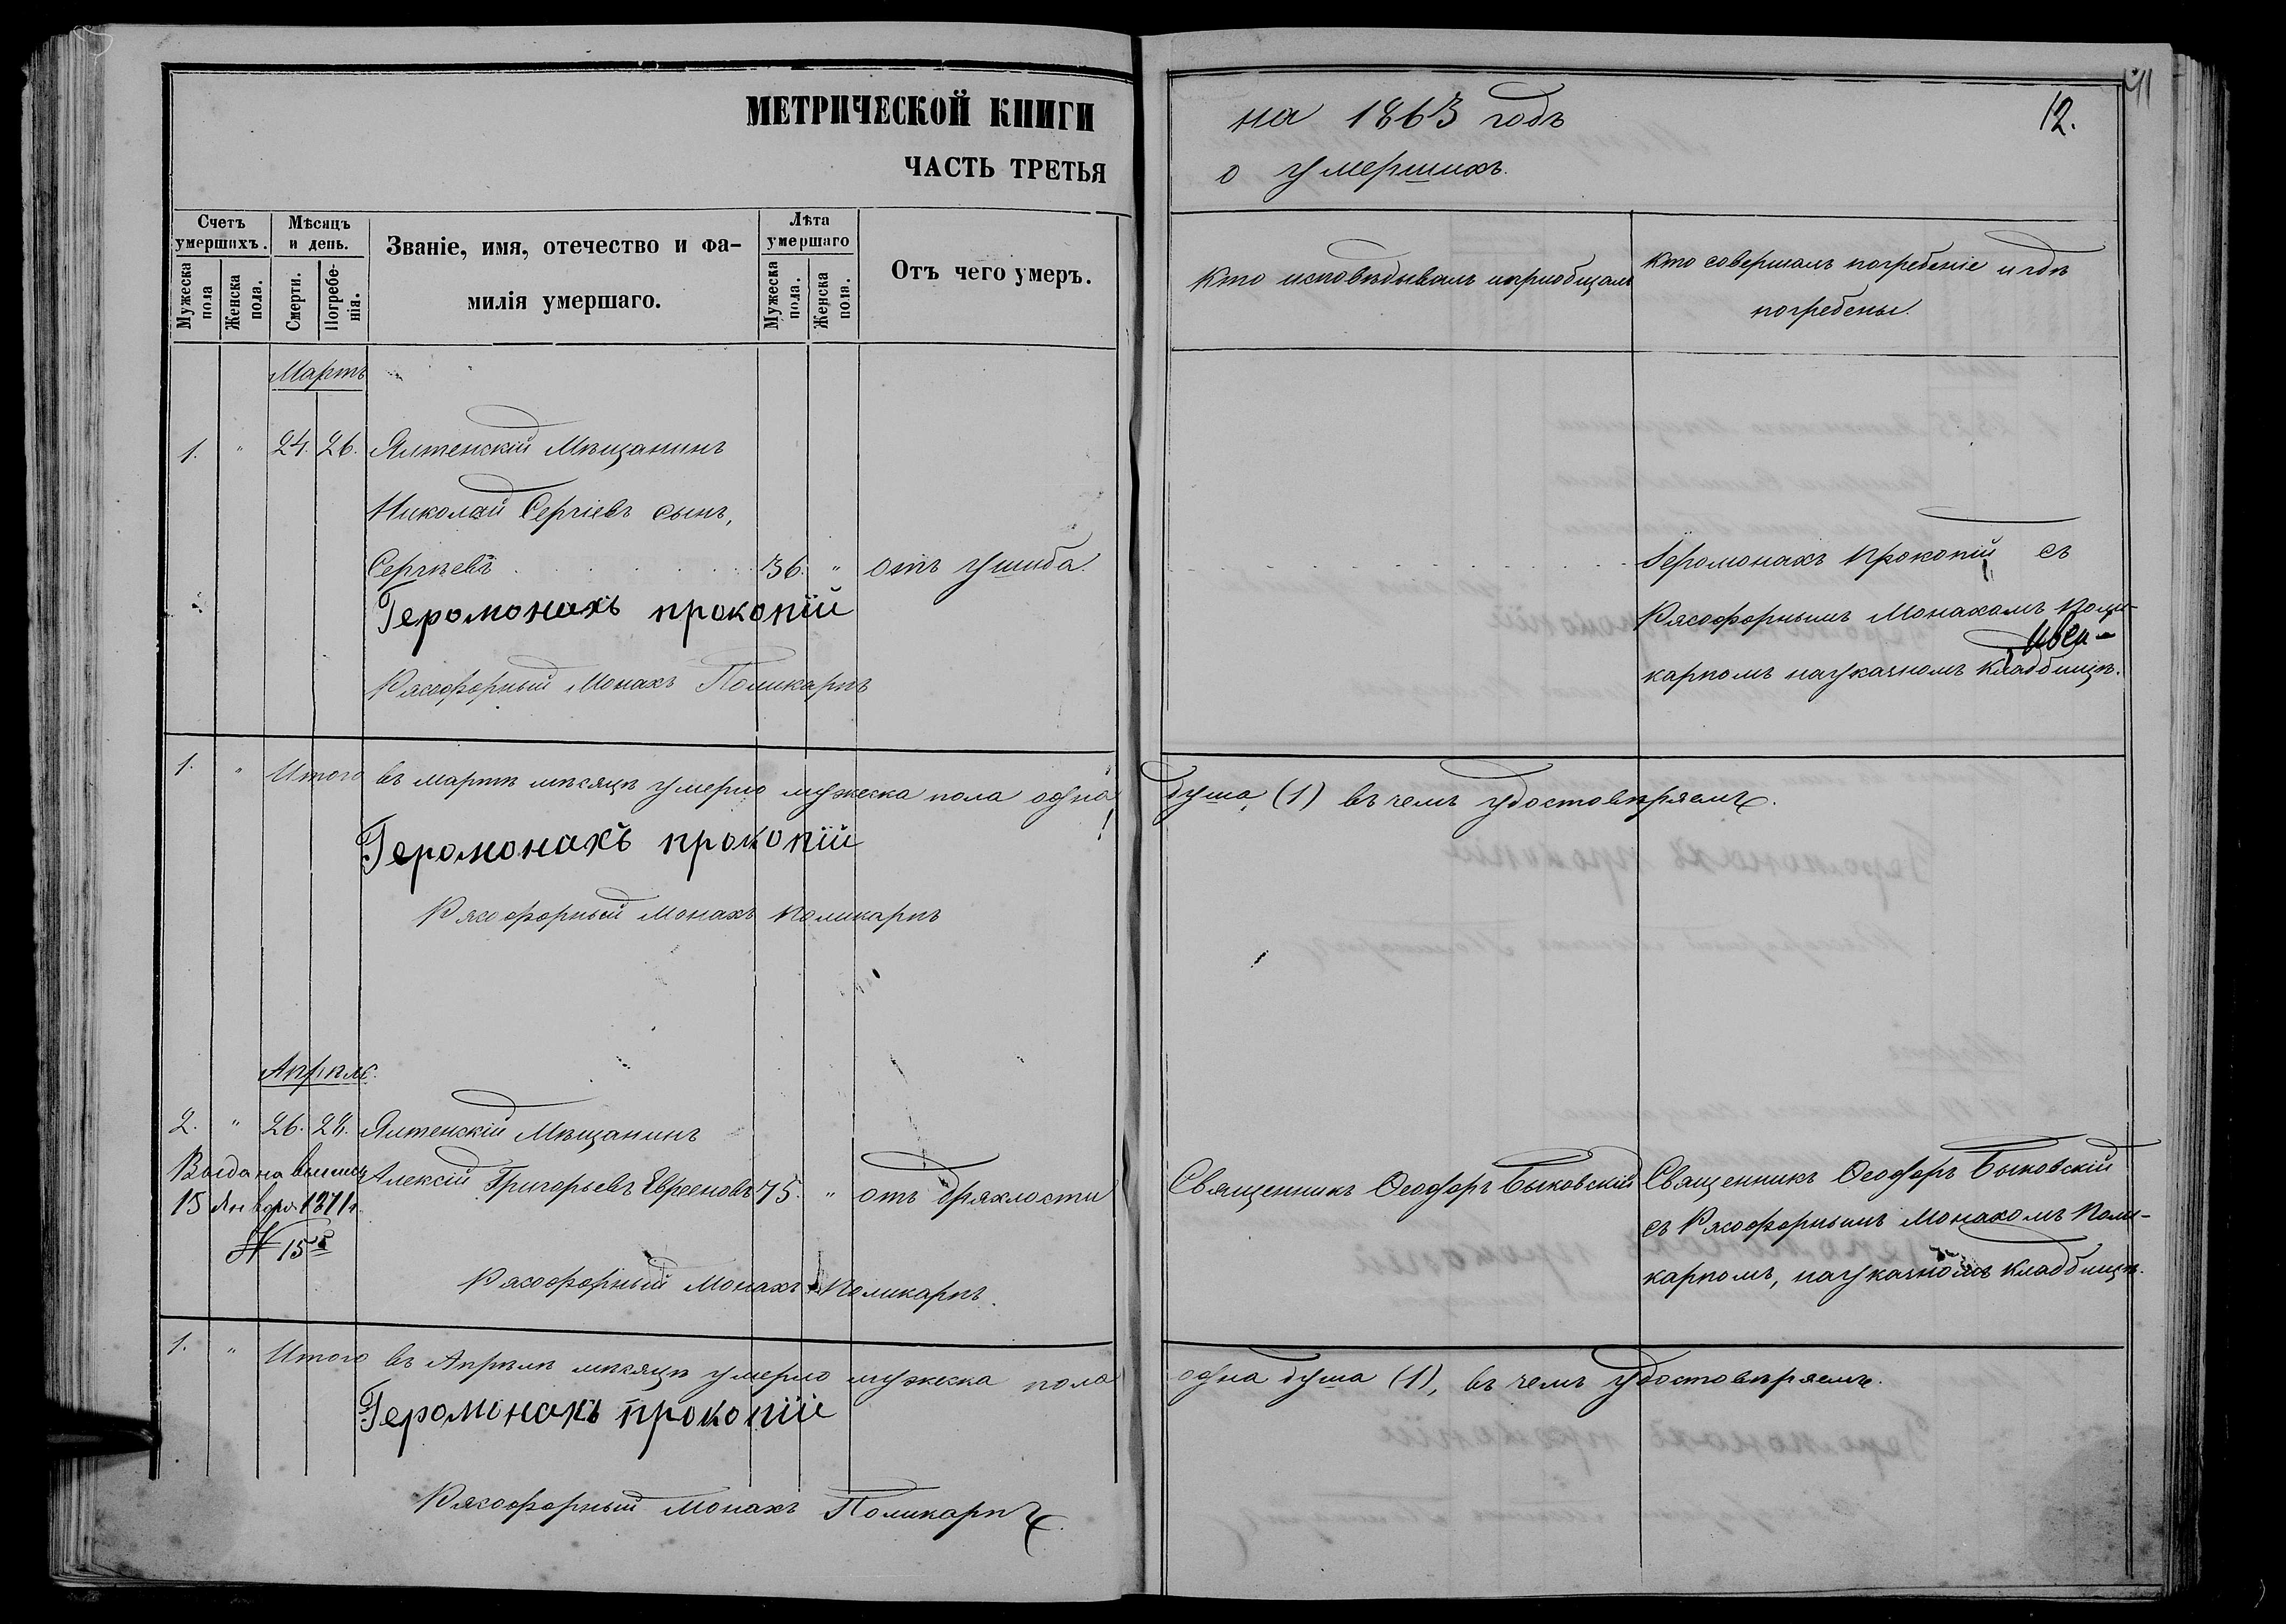 МЕТРИЧЕСКОЙ КНИГИ
ЧАСТЬ ТРЕТЬЯ
на 1863 годъ
о умершихъ.
12.
Счетъ умершихъ.
Мужеска пола
Женска пола.
Мѣсяцъ и день.
Смерти.
Погребе-
нія.
Званіе, имя, отечество и фа-
милія умершаго.
Лѣта умершаго
Мужеска пола.
Женска пола.
Отъ чего умеръ.
Кто исповѣдывалъ и пріобщалъ
Кто совершалъ погребеніе и гдѣ
погребены.
Мартъ
1. " 24. 26. Ялтенскій Мѣщанинъ
Николай Сергіевъ сынъ,
Сергѣевъ 36. " отъ ушиба.
Іеромонахъ прокопій
Рясофорный Монахъ Поликарпъ
Іеромонахъ Прокопій съ
Рясофорнымъ Монахомъ Поли-
карпомъ на укачномъ кладбищѣ.
1. " Итого въ мартѣ мѣсяцѣ умерло мужеска пола одна душа (1) въ чемъ удостовѣряемъ.
Іеромонахъ прокопій
Рясофорный Монахъ Поликарпъ
Апрѣль.
2. " 26. 28. Ялтенскій Мѣщанинъ
Выдана выпись
15 Января 1871 г.
№ 15
Алексій Григорьевъ Евреиновъ 75. " отъ дряхлости
Рясофорный Монахъ Поликарпъ.
Священникъ Ѳеодоръ Быковскій
Священникъ Ѳеодоръ Быковскій
съ Рясофорнымъ Монахомъ Поли-
карпомъ, на укачномъ кладбищѣ.
1. " Итого въ Апрѣлѣ мѣсяцѣ умерло мужеска пола одна душа (1), въ чемъ удостовѣряемъ.
Іеромонахъ прокопій
Рясофорный Монахъ Поликарпъ.